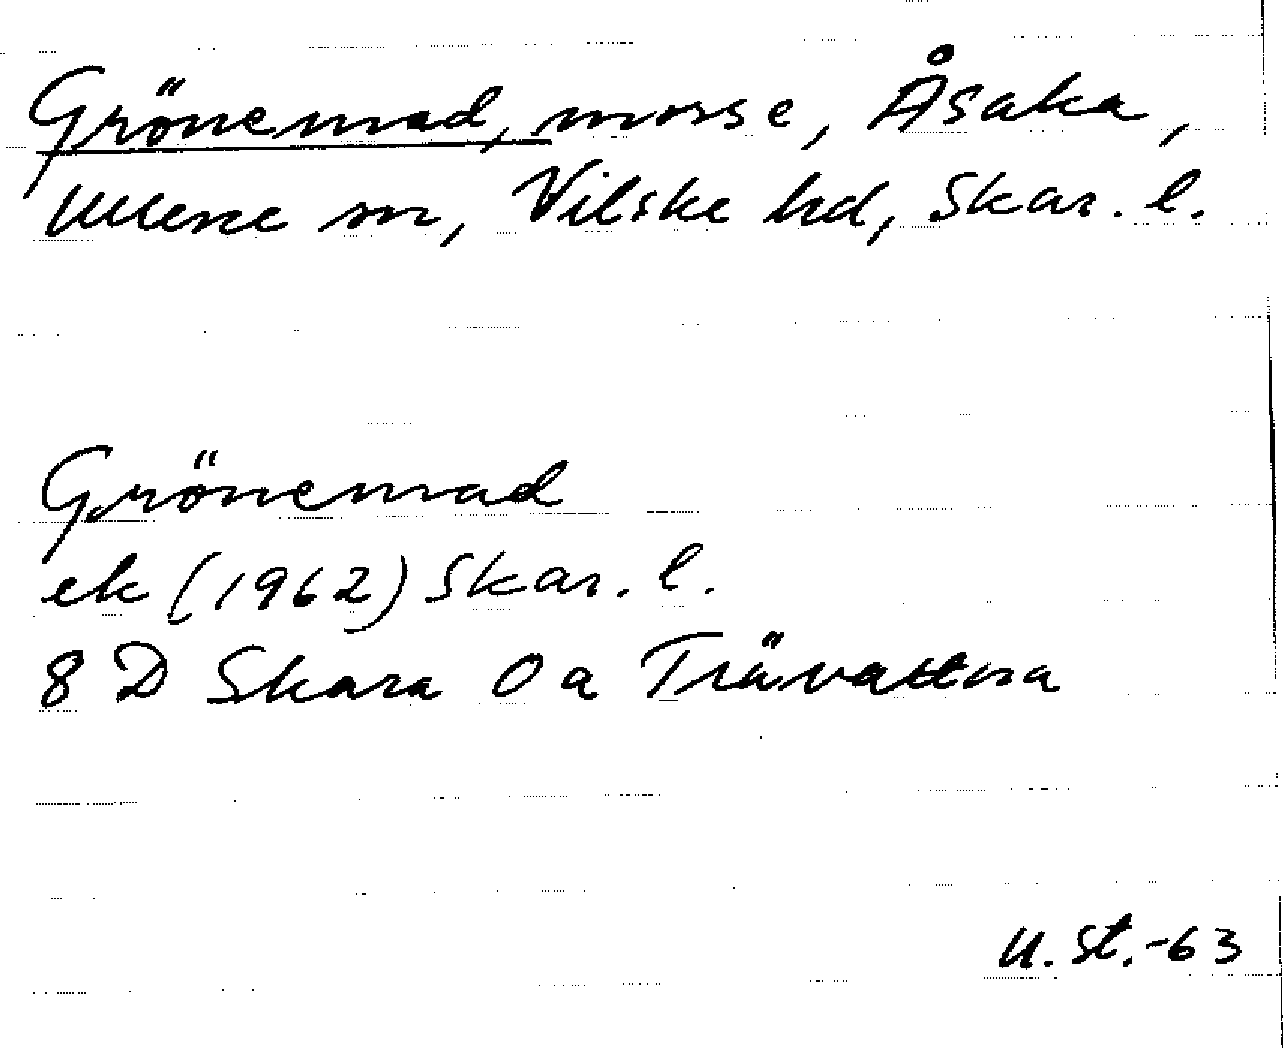 Grönemad, mosse, Åsaka,
Ullene sn, Vilske hd, Skar. l.
Grönemad
ek (1962) Skar. l.
8 D Skara 0 a Trävattna
U. St. -63